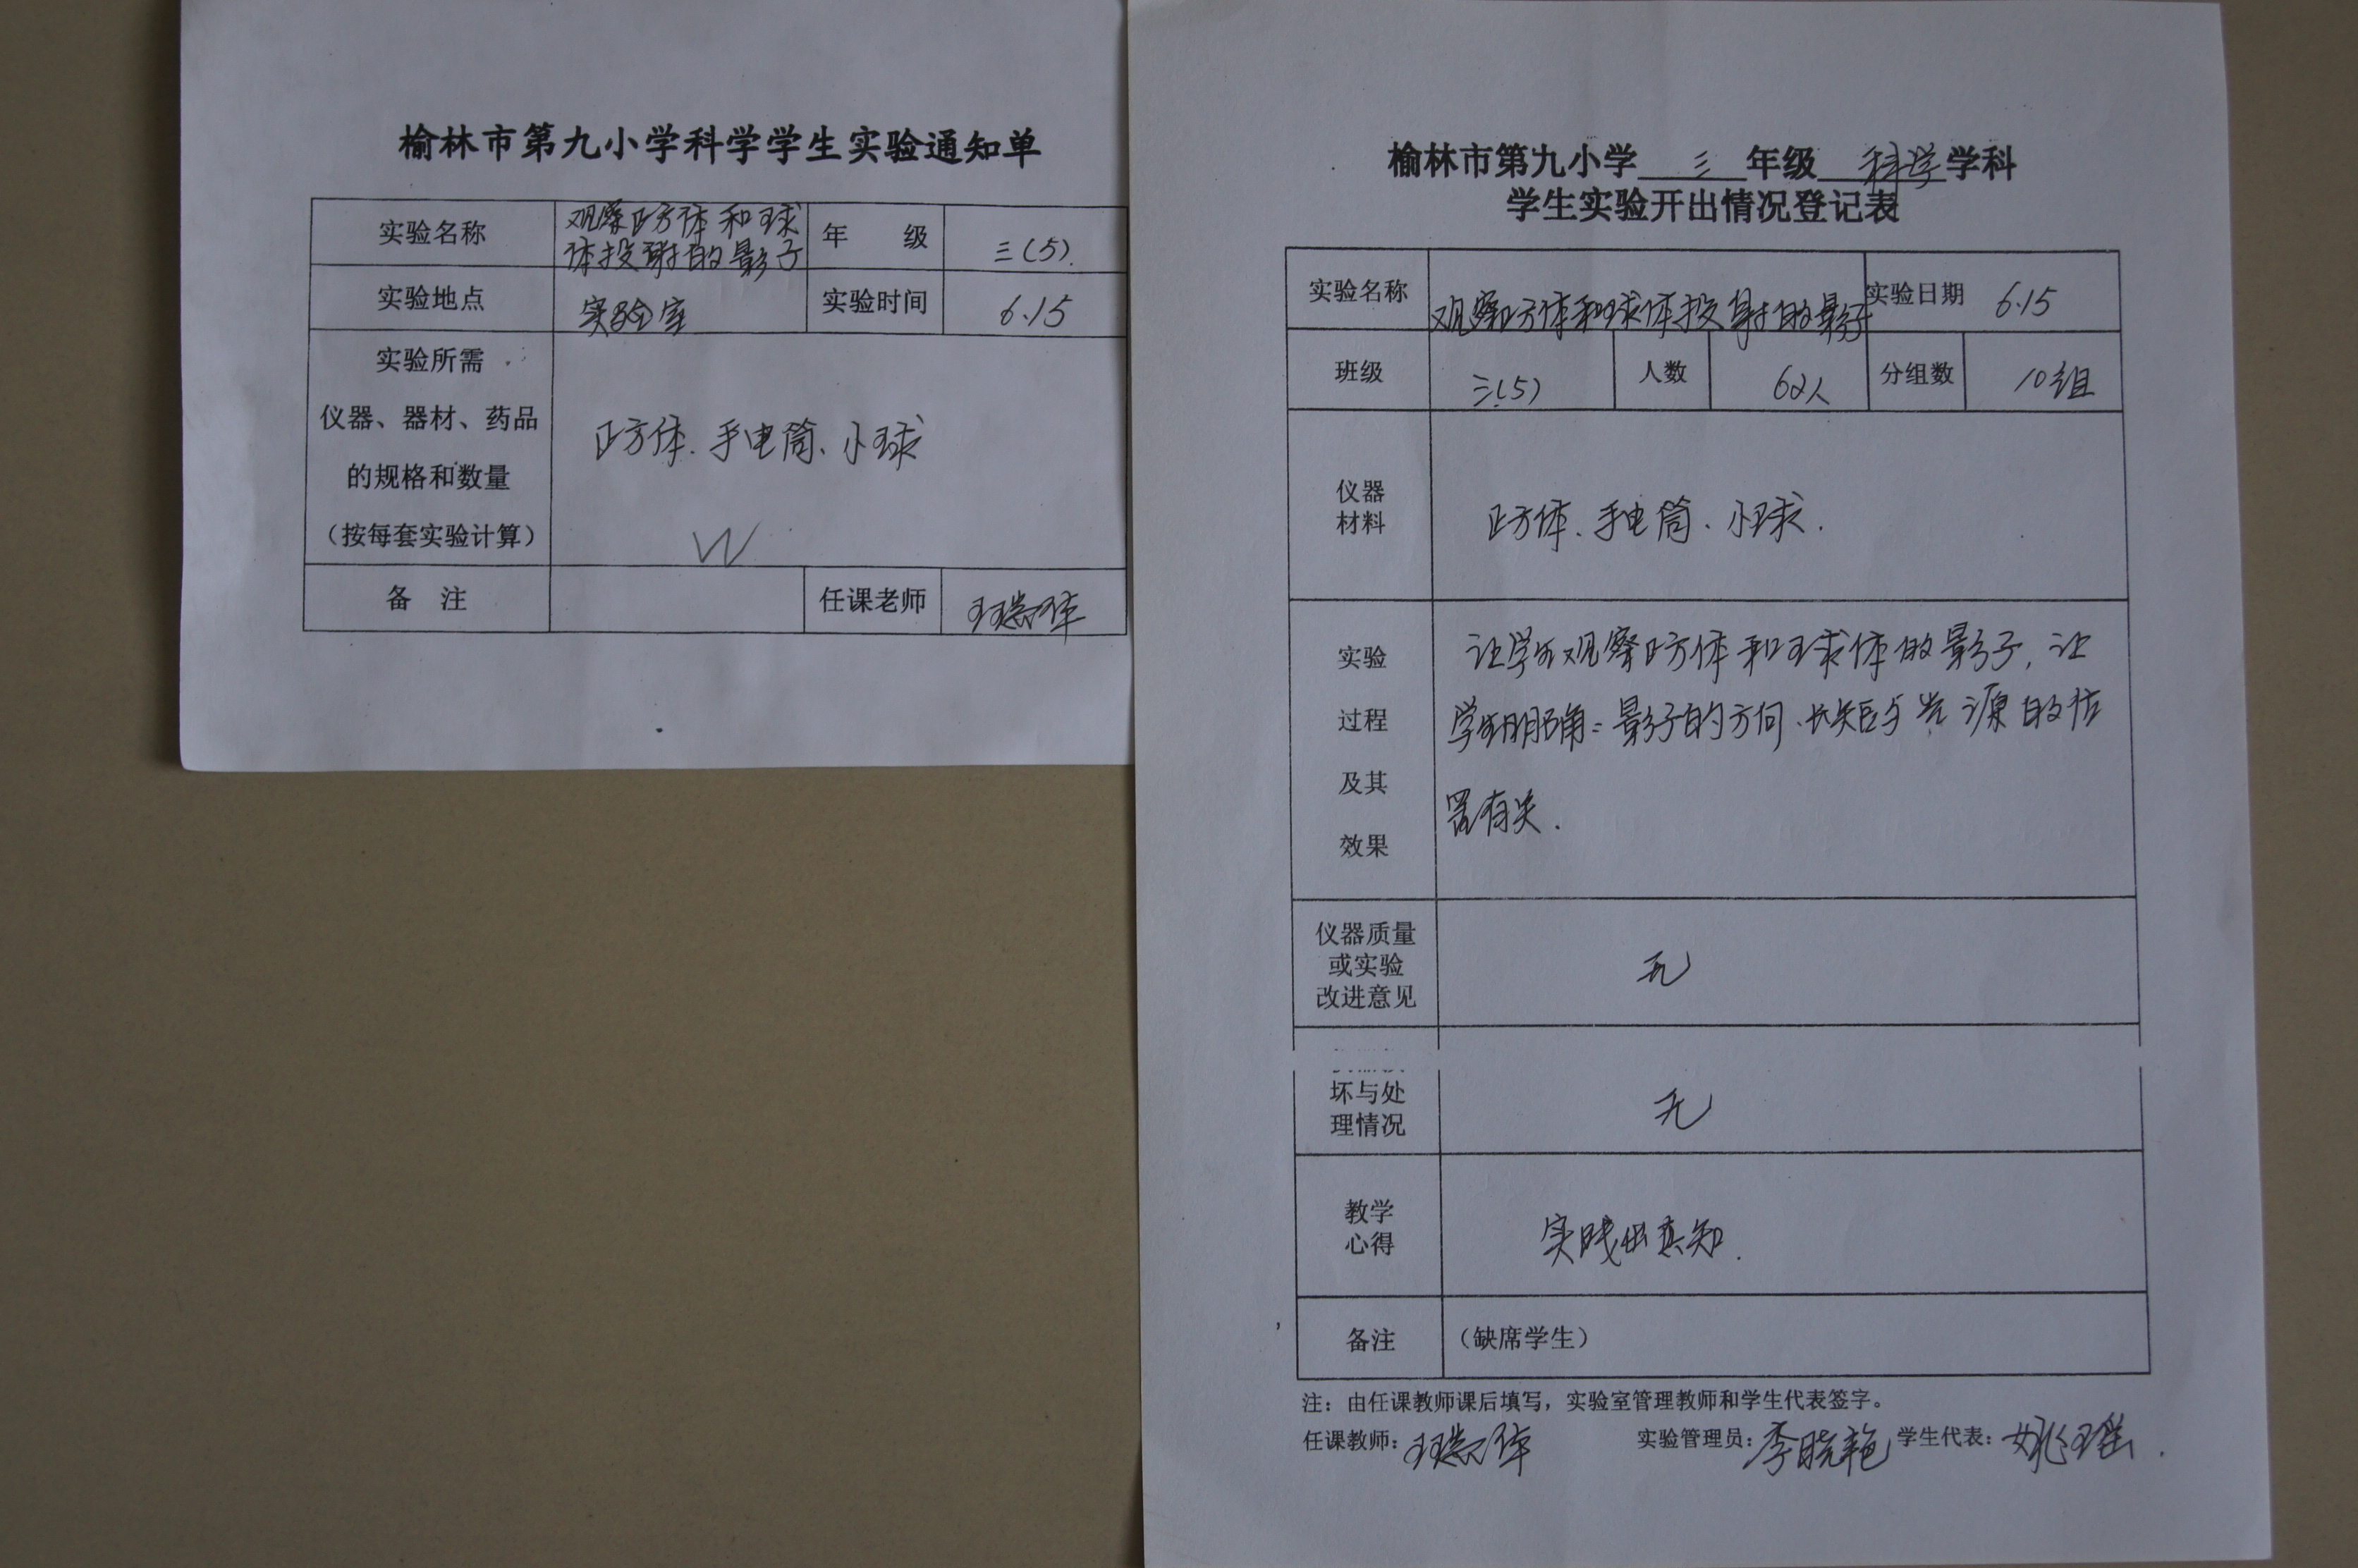 榆林市第九小学科学学生实验通知单
实验名称 观察正方体和球 年 级 三(5).
体投射的影子
实验地点 实验室 实验时间 6.15
实验所需
仪器、器材、药品 正方体、手电筒、小球
的规格和数量
(按每套实验计算)
备 注 任课老师
榆林市第九小学 三 年级 科学 学科
学生实验开出情况登记表
实验名称 观察正方体和球体投射的影子 实验日期 6.15
班级 三(5) 人数 62人 分组数 10组
仪器
材料 正方体、手电筒、小球.
实验 让学生观察正方体和球体的影子,让
过程 学生明确:影子的方向、长短与光源的位
及其 置有关.
效果
仪器质量
或实验 无
改进意见
坏与处 无
理情况
教学
心得 实践出真知.
备注 (缺席学生)
注:由任课教师课后填写,实验室管理教师和学生代表签字。
任课教师: 实验管理员:李晓艳 学生代表:姚瑶.